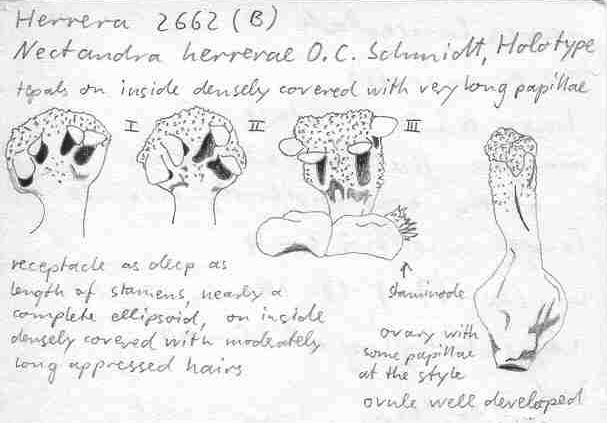 Herrera 2662 (B)
Nectandra herrerae O.C. Schmidt, Holotype
tepals on inside densely covered with very long papillae
I II III
receptacle as deep as
length of stamens, nearly a
complete ellipsoid, on inside
densely covered with moderately
long appressed hairs
staminode
ovary with
some papillae
at the style
ovule well developed